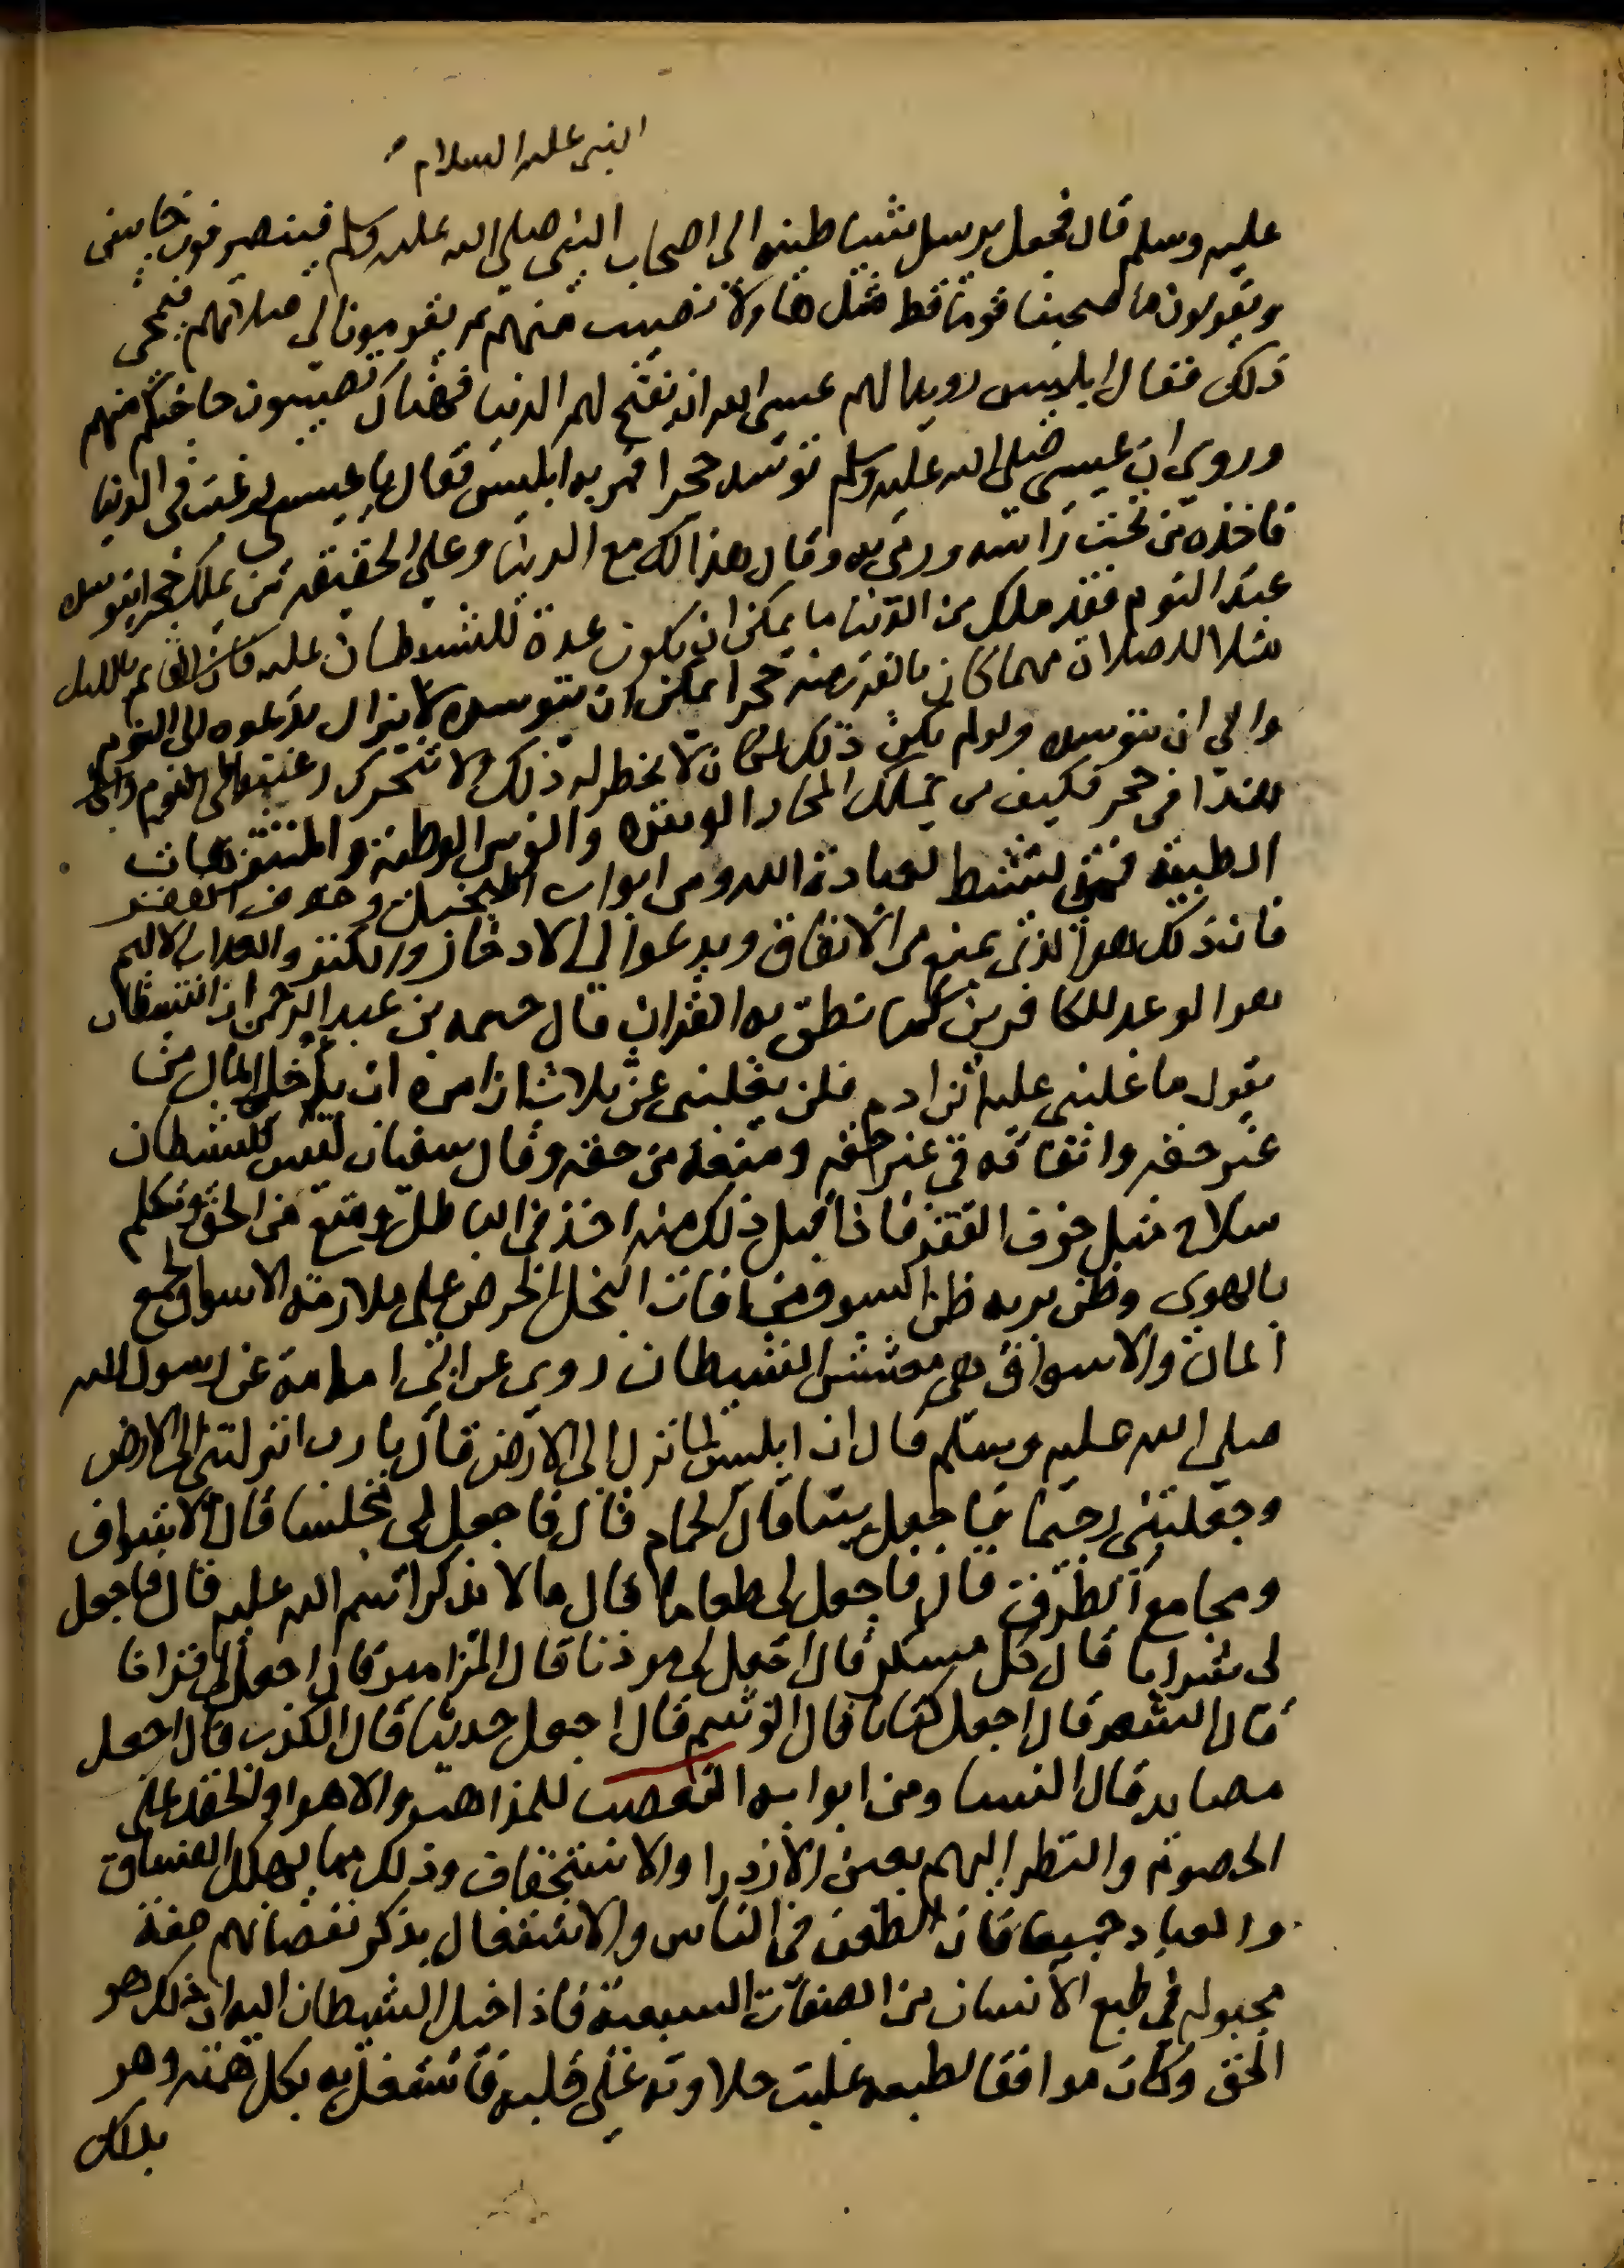 النبي عليه السلام
عليه وسلم قال فجعل يرسل شياطينه الى اصحاب النبي صلى الله عليه وسلم فينصرفون خايبين
ويقولون ما صحبنا قوما قط مثل هاولا نصيب منهم ثم يقومون الى صلاتهم فيمحى
ذلك فقال ابليس رويدا لهم عسى الله ان يفتح لهم الدنيا فهناك تصيبون حاجتكم منهم
وروي ان عيسى صلى الله عليه وسلم توسد حجرا فمر به ابليس فقال يا عيسى رغبت في الدنيا
فاخذه من تحت راسه ورمى به وقال هذا لك مع الدنيا وعلى الحقيقه من يملك حجرا يتوسده
عند النوم فقد ملك من الدنيا ما يمكن ان يكون عدة للشيطان عليه فان القايم بالليل
مثلا للصلاة مهما كان بالقرب منه حجرا يمكن ان يتوسده لا يزال يدعوه الى النوم
والى ان يتوسده ولو لم يكن ذلك لكان لا يخطر له ذلك ولا تتحرك رغبته الى النوم
هذا في حجر فكيف من يملك المخاد الوثيره والفرش الوطيه والمنتزهات
الطيبة فمتى ينشط لعبادة الله ومن ابوابه البخل وخوف الفقر
فان ذلك هو الذي يمنع من الانفاق ويدعوا الى الادخار والكنز والعذاب الاليم
هو الوعد للكافرين كما نطق به القران قال خيثمه بن عبد الرحمن ان الشيطان
يقول ما غلبني عليه ابن ادم فلن يغلبني عن ثلاث ان امره ان ياخذ المال من
غير حقه وانفاقه في غير حقه ومنعه من حقه وقال سفيان ليس للشيطان
سلاح مثل خوف الفقر فاذا قبل ذلك منه اخذ في الباطل ومنع من الحق وتكلم
بالهوى وظن بربه ظن السوء ومن افات البخل الحرص على ملازمة الاسواق لجمع
المال والاسواق هي معشش الشيطان روي عن ابي امامة عن رسول الله
صلى الله عليه وسلم قال ان ابليس لما نزل الى الارض قال يا رب انزلتني الى الارض
وجعلتني رجيما فاجعل بيتا قال الحمام قال فاجعل لي مجلسا قال الاسواق
ومجامع الطرق قال فاجعل لي طعاما قال ما لا يذكر اسم الله عليه قال فاجعل
لي شرابا قال كل مسكر قال اجعل لي موذنا قال المزامير قال اجعل لي قرانا
قال الشعر قال اجعل كتابا قال الوشم قال اجعل حديثا قال الكذب قال اجعل
مصايد قال النسا ومن ابوابه التعصب للمذاهب والاهوا والحقد على
الخصوم والنظر اليهم بعين الازدرا والاستخفاف وذلك مما يهلك الفساق
والعباد جميعا فان الطعن في الناس والاشتغال بذكر نقصانهم صفة
مجبوله في طبع الانسان من الصفات السبعية فاذا خيل الشيطان اليه ان ذلك هو
الحق وكان موافقا لطبعه غلبت حلاوته على قلبه فاشتغل به بكل همته وهو
بذلك